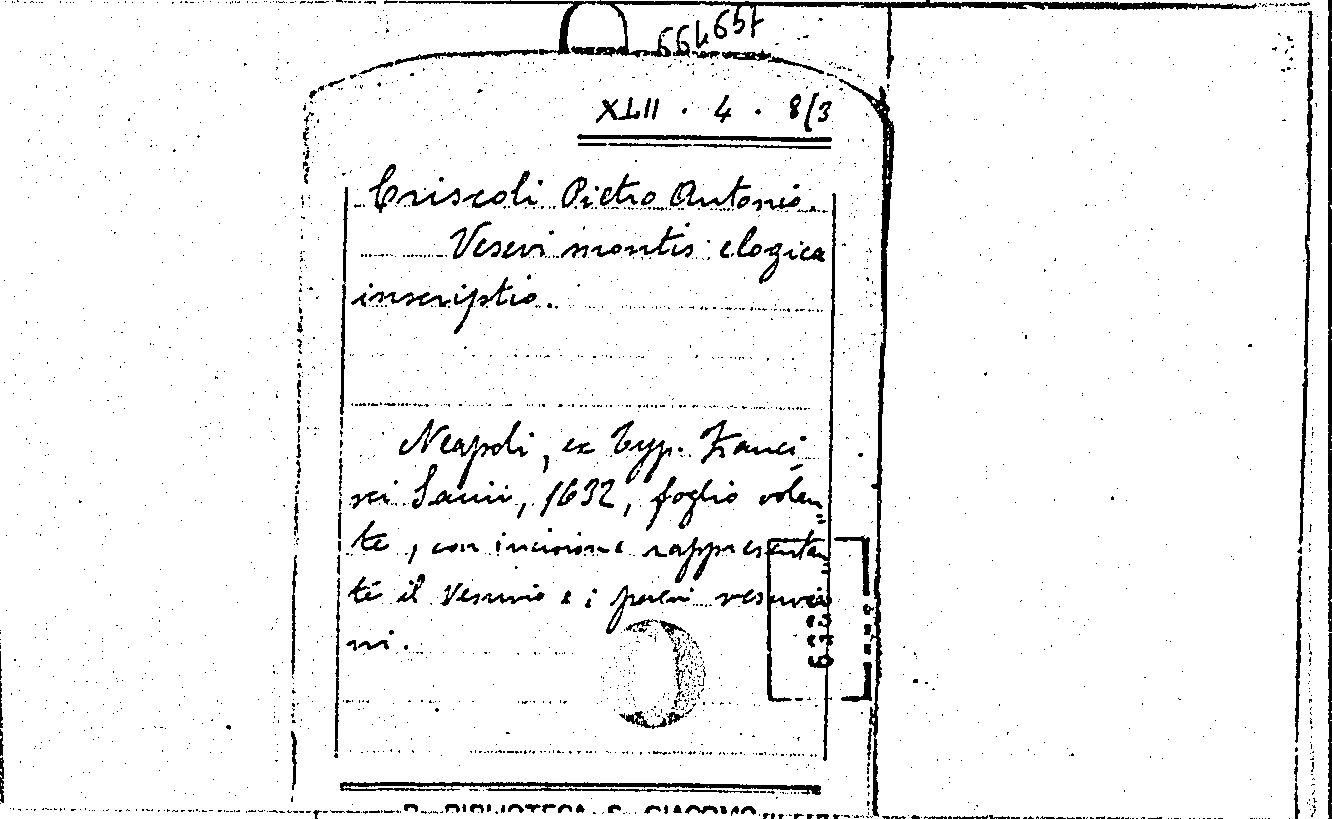 664657
XLII . 4 . 8/3
Criscoli Pietro Antonio.
Vesevi montis elogica
inscriptio.
Neapoli, ex Typ. Franci
sci Savii, 1632, foglio volan
te, con incisione rappresentan
te il Vesuvio e i paesi vesuvia
ni.